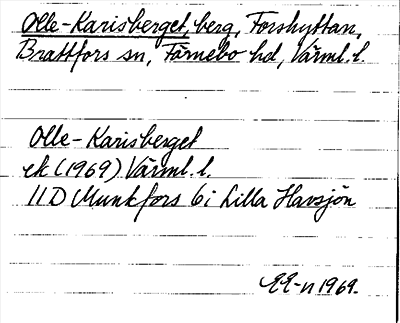 Olle-Karisberget, berg, Forshyttan,
Brattfors sn, Färnebo hd, Värml. l.
Olle-Karisberget
ek (1969) Värml. l.
11D Munkfors 6i Lilla Havsjön
EE-n 1969.